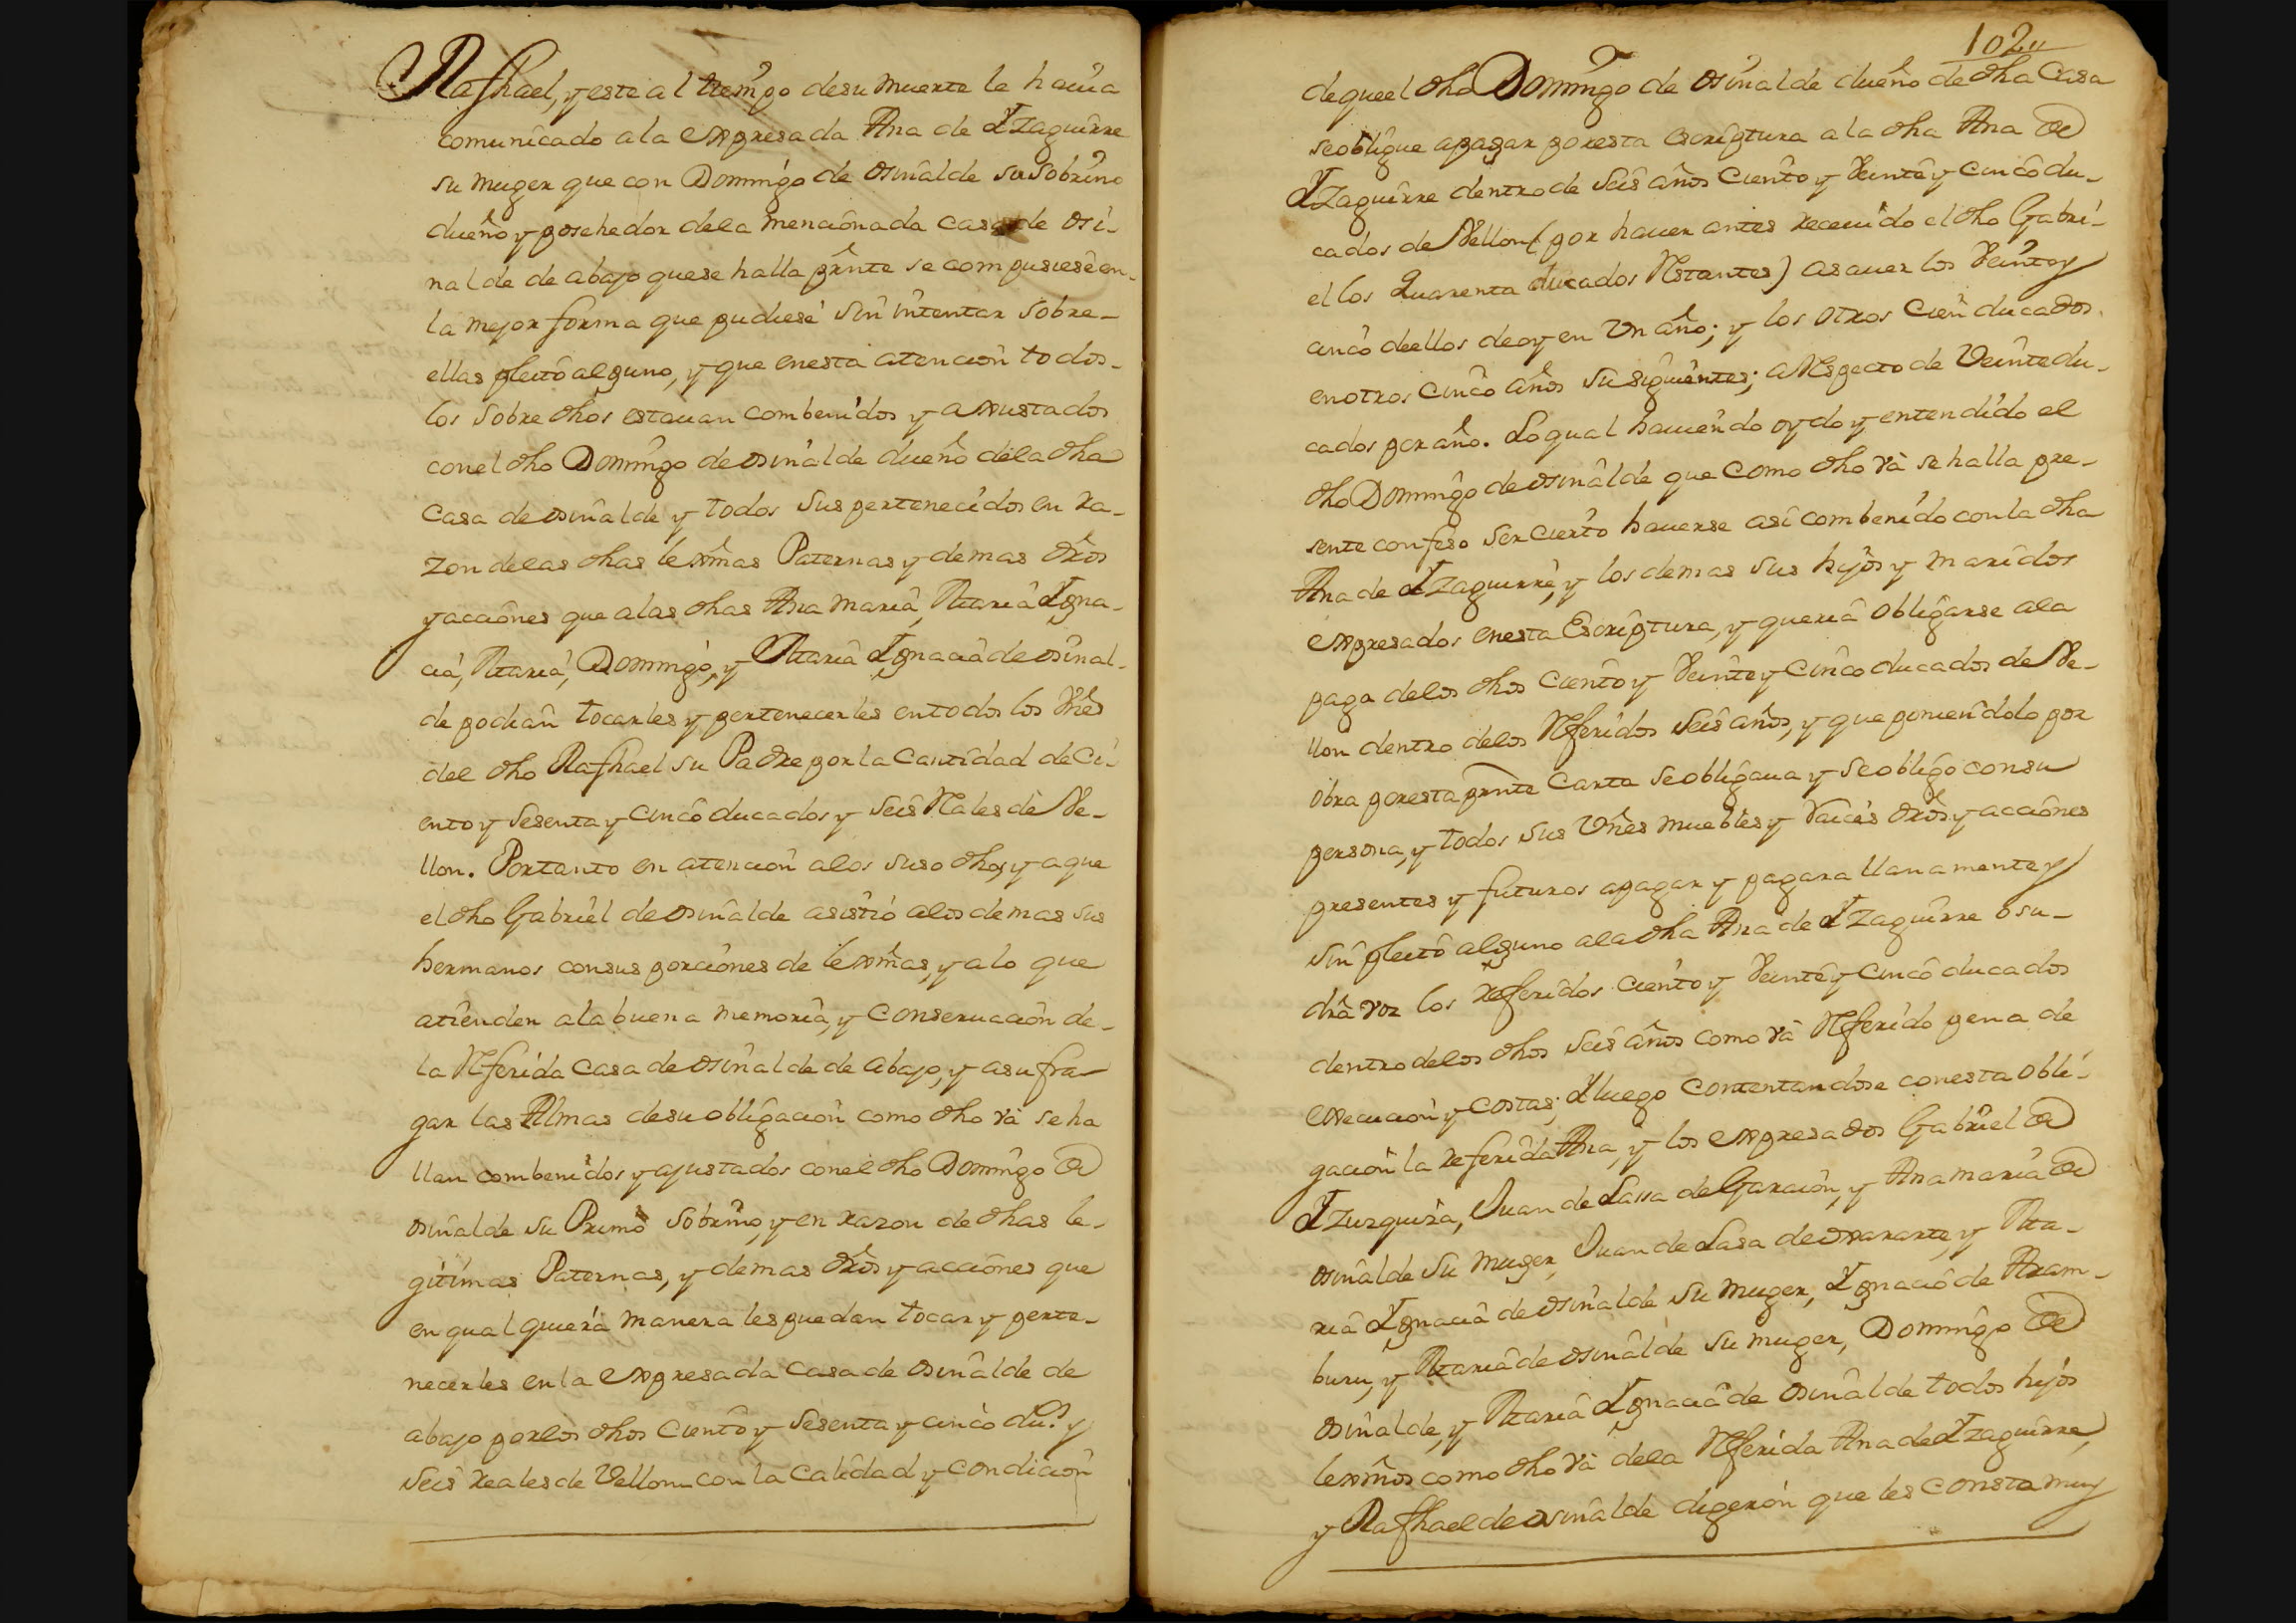 Raphael, y este al tiempo de su muerte le hauia
comunicado a la expresada Ana de Yzaguirre
su muger que con Domingo de osinalde su sobrino
dueño y posehedor dela mencionada casa de osi-
nalde de abajo que se halla prnte se compusiese en-
la mejor forma que pudiese sin intentar sobre-
ellas pleito alguno, y que en esta atencion todos-
los sobre dhos estauan combenidos y axustados
con el dho Domingo de osinalde dueño dela dha
casa de osinalde y todos sus pertenecidos en ra-
zon delas dhas lexmas Paternas y demas dros
y acciones que alas dhas Ana maria, Maria Ygna-
cia, Maria, Domingo, y Maria Ygnacia de osinal-
de podian tocarles y pertenecerles en todos los Vnes
del dho Raphael su Padre por la Cantidad de Ci-
ento y sesenta y cinco ducados y seis Rales de Ve-
llon. Portanto en atencion alos suso dhos, y aque
el dho Gabriel de osinalde asistio alos demas sus
hermanos con sus porciones de lexmas, y alo que
atienden ala buena memoria, y Conseruacion de-
la Referida casa de osinalde de abajo, y asufra-
gar las Almas de su obligacion como dho va se ha
llan combenidos y ajustados con el dho Domingo de
osinalde su Primo sobrino, y en razon de dhas le-
gitimas Paternas, y demas dros y acciones que
en qualquiera manera les puedan tocar y perte-
necerles en la expresada casa de osinalde de
abajo por los dhos Ciento y sesenta y cinco dus. y
seis reales de Vellon con la Calidad y Condicion
102
de que el dho Domingo de osinalde dueño de dha Casa
se obligue apagar por esta escriptura a la dha Ana de
Yzaguirre dentro de seis años Ciento y Veinte y Cinco du-
cados de Vellon (por hauer antes receuido el dho Gabri-
el los Quarenta ducados Restantes) asauer los Veinte y
cinco deellos de oy en Vn año; y los otros Cien ducados
en otros Cinco años subsiguientes; a Respecto de Veinte du-
cados por año. Lo qual hauiendo oydo y entendido el
dho Domingo de osinalde que como dho va se halla pre-
sente confeso ser cierto hauerse asi combenido con la dha
Ana de Yzaguirre, y los demas sus hijos y maridos
expresados en esta Escriptura, y queria obligarse ala
paga delos dhos Ciento y Veinte y Cinco ducados de Ve-
llon dentro delos Referidos seis años, y que poniendolo por
obra por esta prnte Carta se obligaua y se obligo con su
persona, y todos sus Vnes muebles y Raices dros y acciones
presentes y futuros apagar y pagara llanamente y
sin pleito alguno ala dha Ana de Yzaguirre o su-
dra voz los referidos ciento y Veinte y Cinco ducados
dentro delos dhos seis años como va Referido pena de
execucion y costas; Y luego contentandose con esta obli-
gacion la referida Ana, y los expresados Gabriel de
Yzurquiza, Juan de Lassa de Garacion, y Ana maria de
osinalde su muger, Juan de Lasa de oxararte, y Ma-
ria Ygnacia de osinalde su muger, Ygnacio de Aram-
buru, y Maria de osinalde su muger, Domingo de
osinalde, y Maria Ygnacia de osinalde todos hijos
lexmos como dho va dela Referida Ana de Yzaguirre,
y Raphael de osinalde digeron que les consta muy